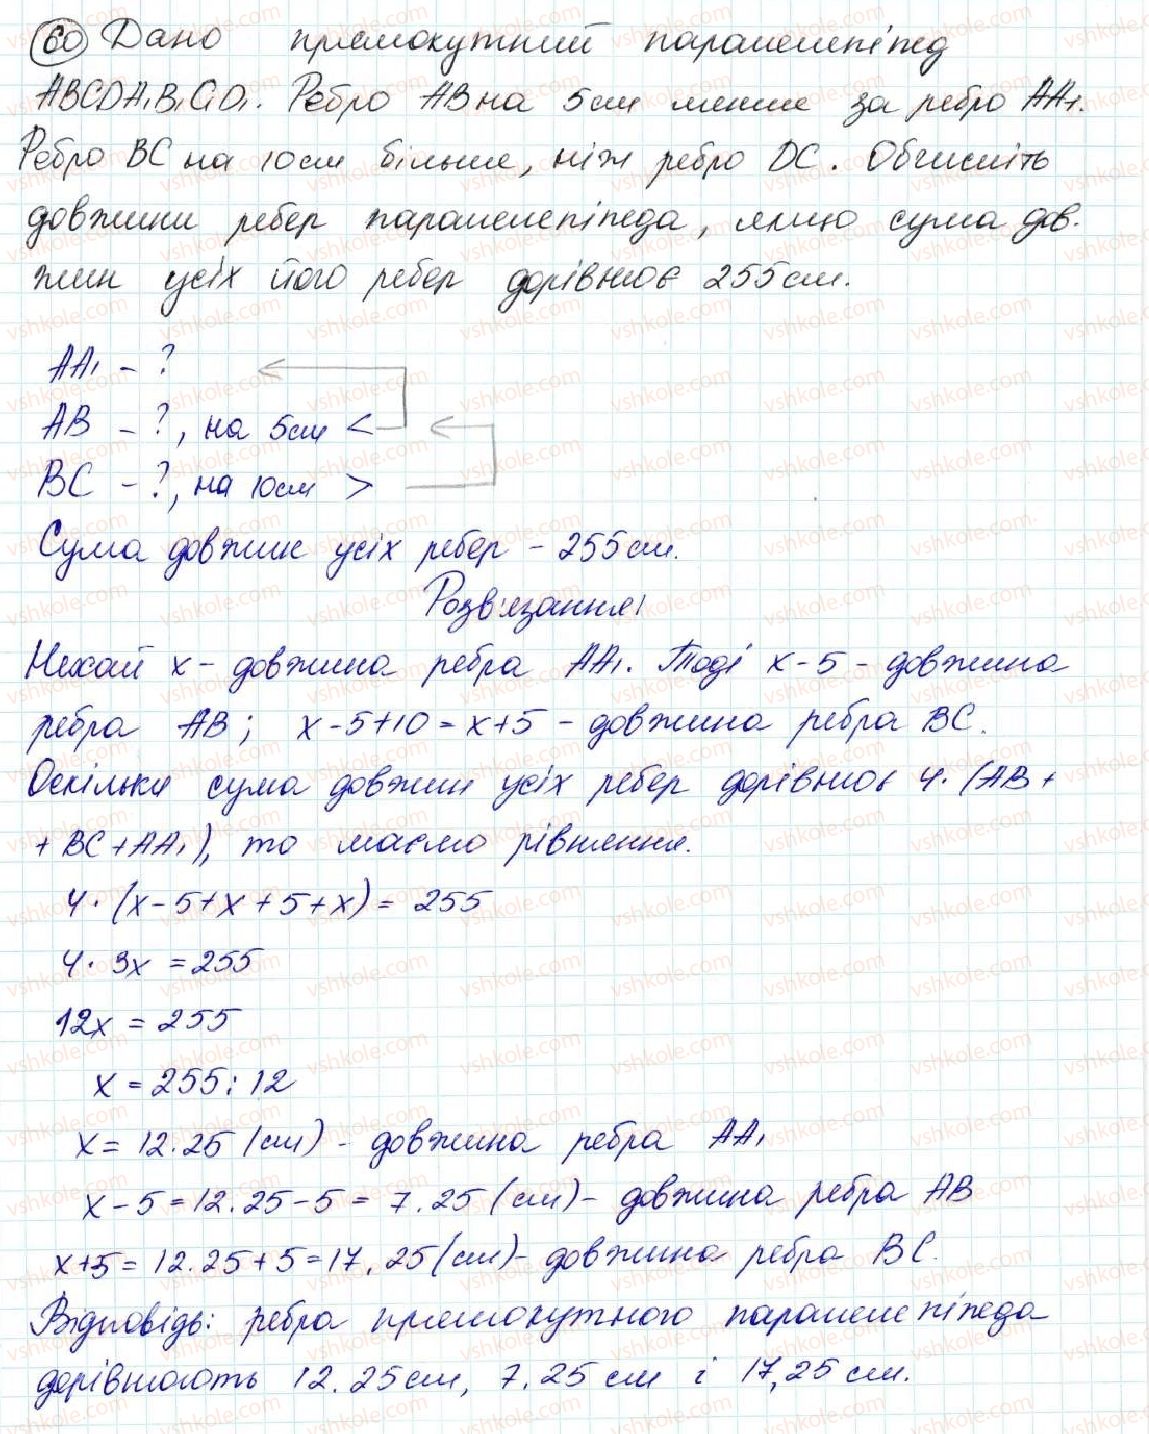 60 Дано прямокутний паралелепіпед
ABCDA₁B₁C₁D₁. Ребро AB на 5см менше за ребро AA₁.
Ребро BC на 10см більше, ніж ребро DC. Обчисліть
довжини ребер паралелепіпеда, якщо сума дов-
жин усіх його ребер дорівнює 255см.
AA₁ - ?
AB - ?, на 5см <
BC - ?, на 10см >
Сума довжин усіх ребер - 255см.
Розв'язання
Нехай x - довжина ребра AA₁. Тоді x-5 - довжина
ребра AB; x-5+10=x+5 - довжина ребра BC.
Оскільки сума довжин усіх ребер дорівнює 4·(AB+
+BC+AA₁), то маємо рівняння.
4·(x-5+x+5+x)=255
4·3x=255
12x=255
x=255:12
x=12.25(см) - довжина ребра AA₁
x-5=12.25-5=7.25(см) - довжина ребра AB
x+5=12.25+5=17,25(см) - довжина ребра BC.
Відповідь: ребра прямокутного паралелепіпеда
дорівнюють 12.25см, 7.25см і 17,25см.
vshkole.com